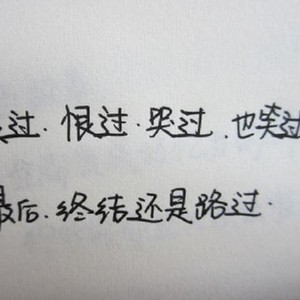 过.恨过.哭过.也笑过
最后.终结还是路过.